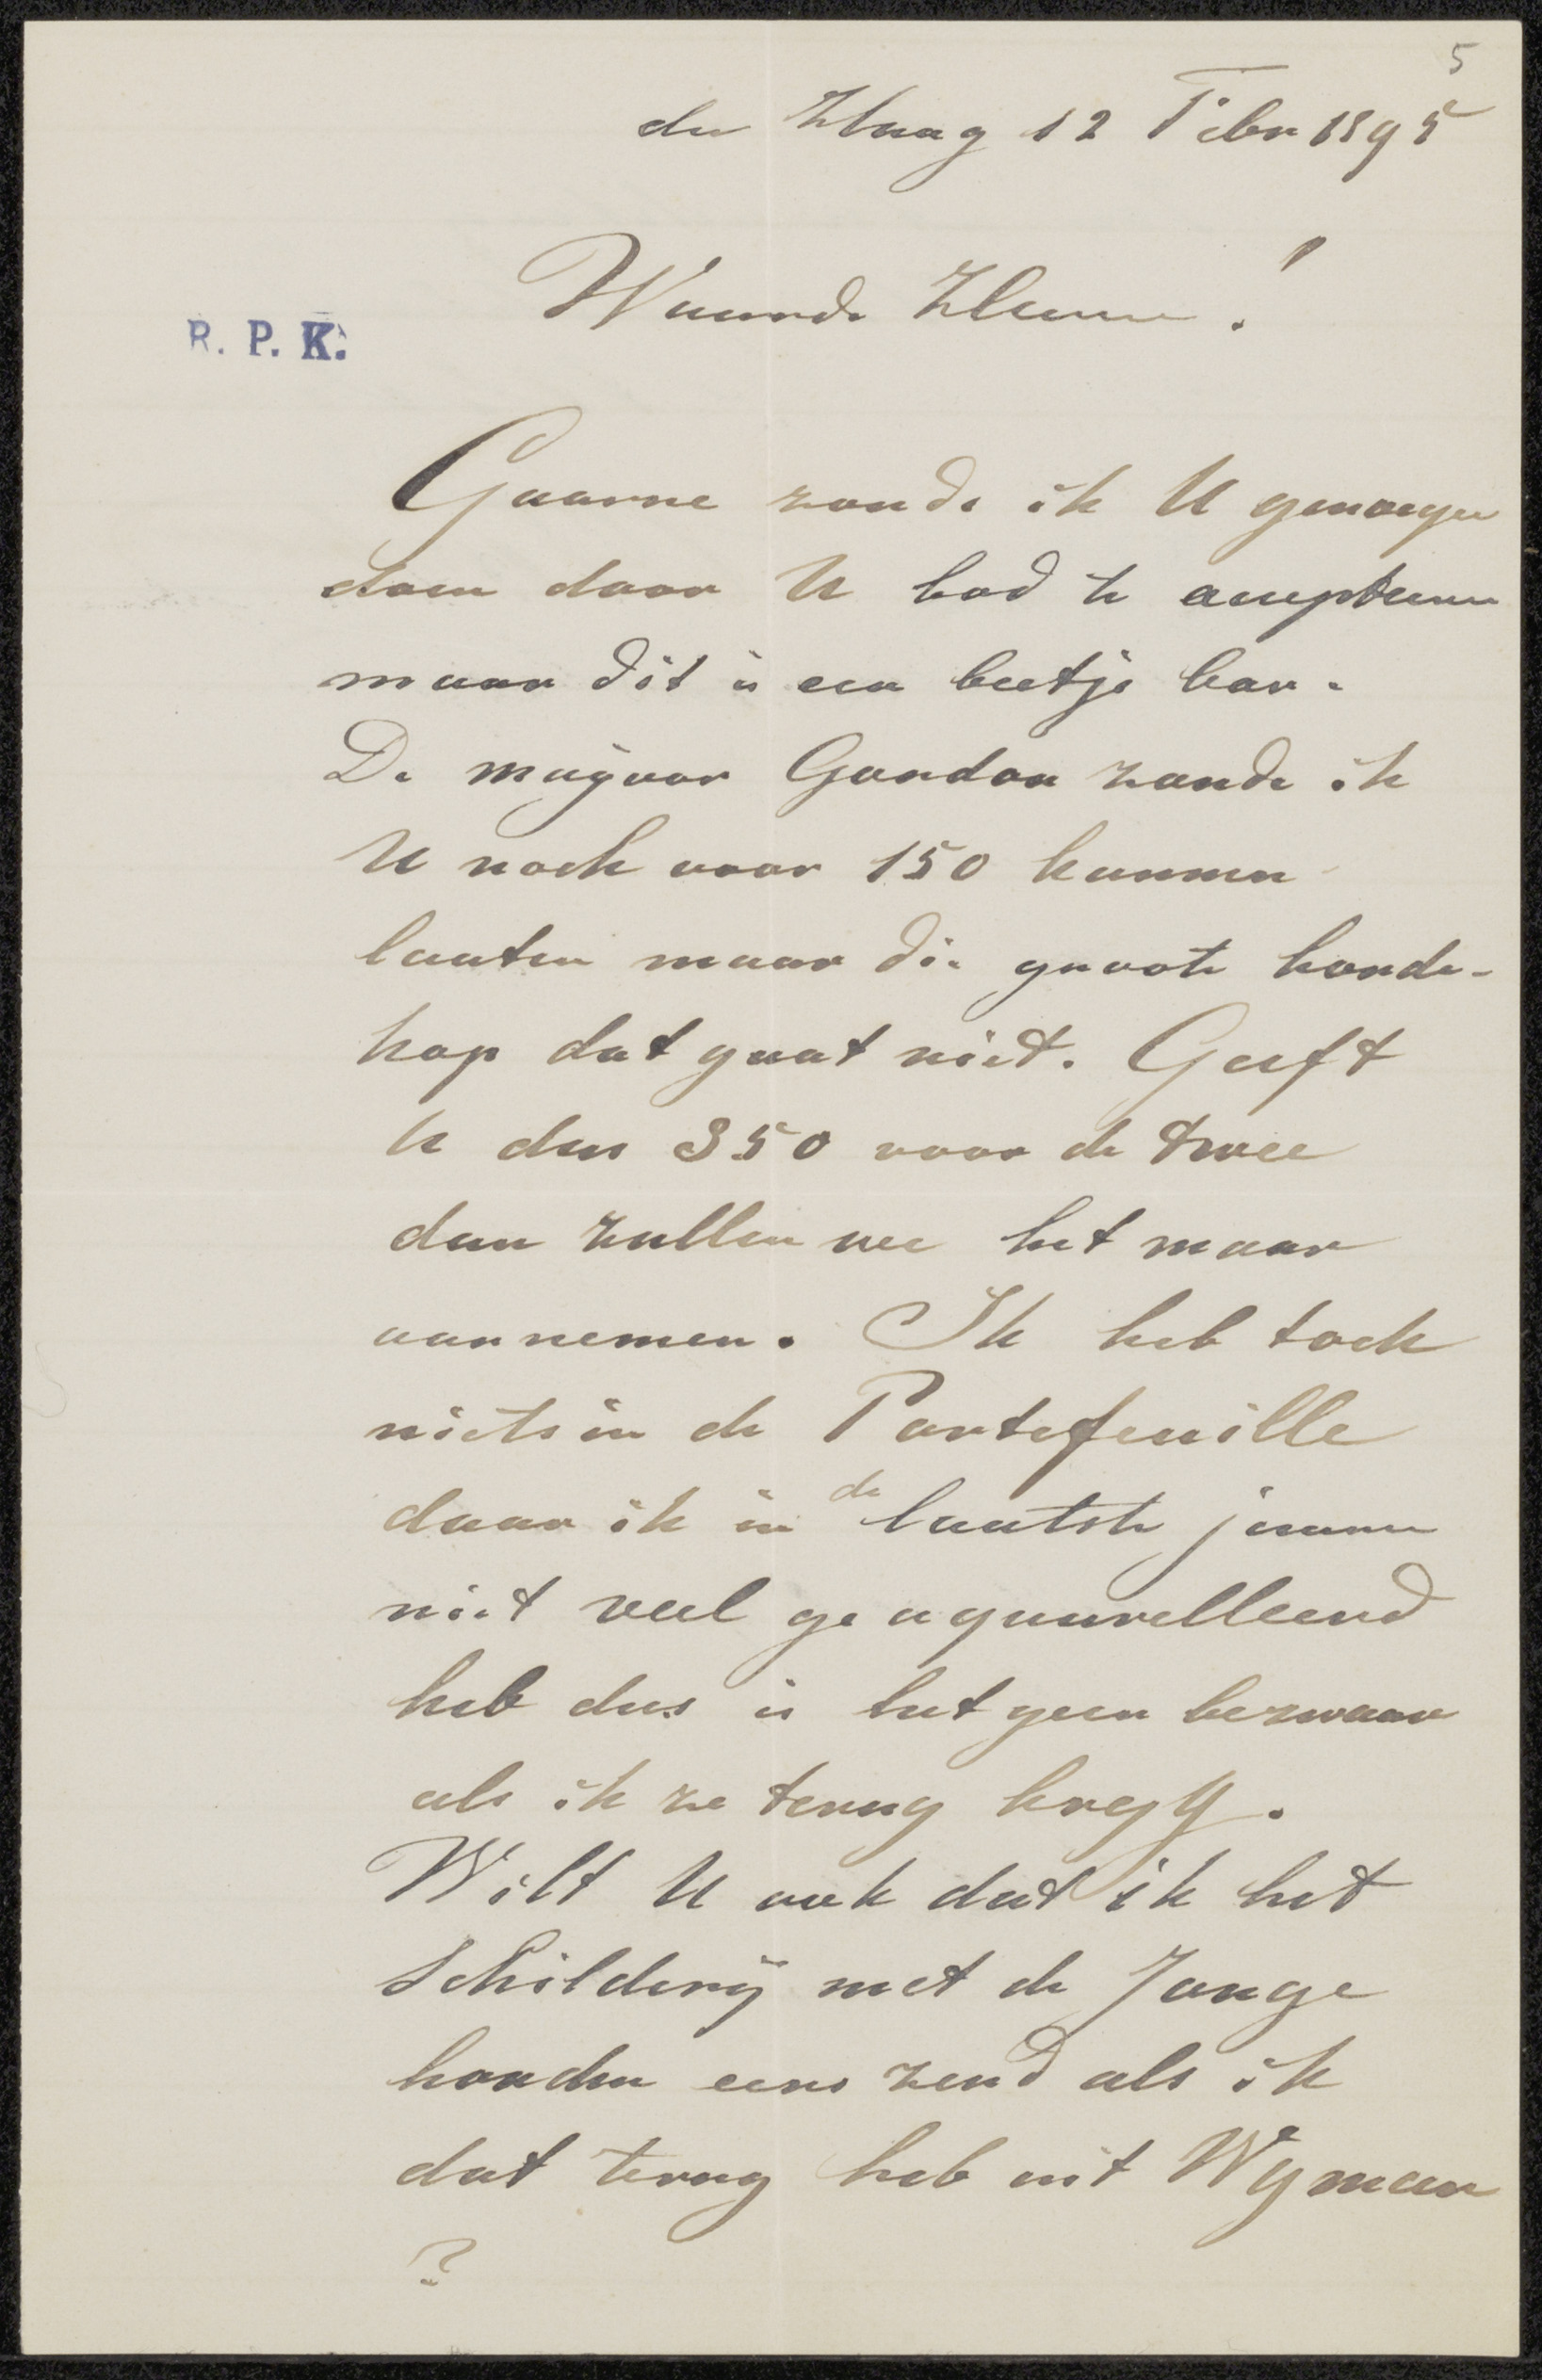 5
den Haag 12 Febr 1895
Waarde Heeren!
R. P. K.
Gaarne zoude ik U genoegen
doen door U bod te accepteeren
maar dit is een beetje bar.
De majoor Gordon zoude ik
U noch voor 150 kunnen
laaten maar die groote honde-
kop dat gaat niet. Geeft
U dus 350 voor de twee
dan zullen we het maar
aannemen. Ik heb toch
niets in de Portefeuille
daar ik in de laatste jaaren
niet veel geaquarelleerd
heb dus is het geen bezwaar
als ik ze terug kryg.
Wilt U ook dat ik het
Schildery met de Jonge
honden eens zend als ik
dat terug heb uit Wymar
?